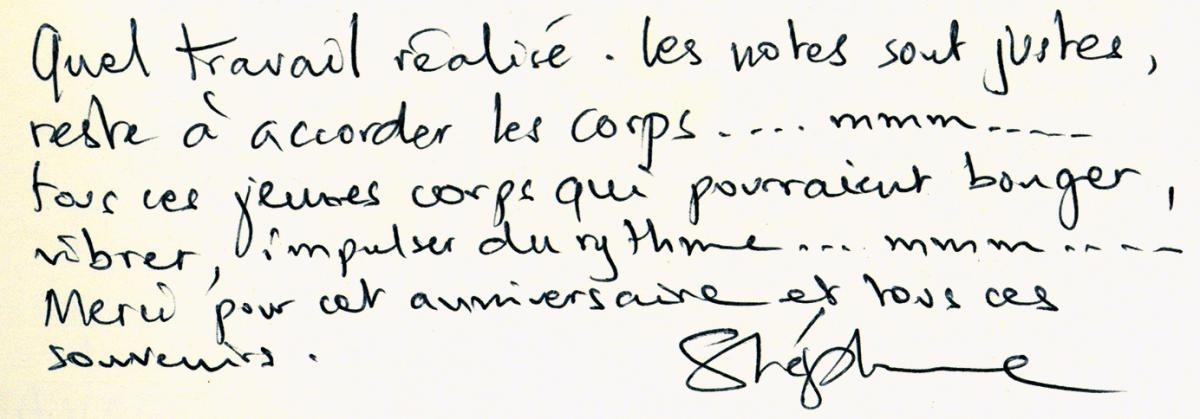 Quel travail réalisé. les notes sont justes,
reste à accorder les corps..... mmm.....
tous ces jeunes corps qui pourraient bouger,
vibrer, impulser du rythme.... mmm.....
Merci pour cet anniversaire et tous ces
souvenirs.
Stéphane